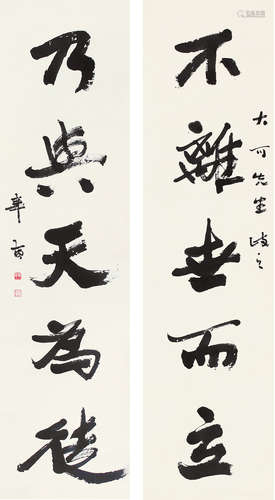 不離世而立
大可先生政之
乃與天為徒